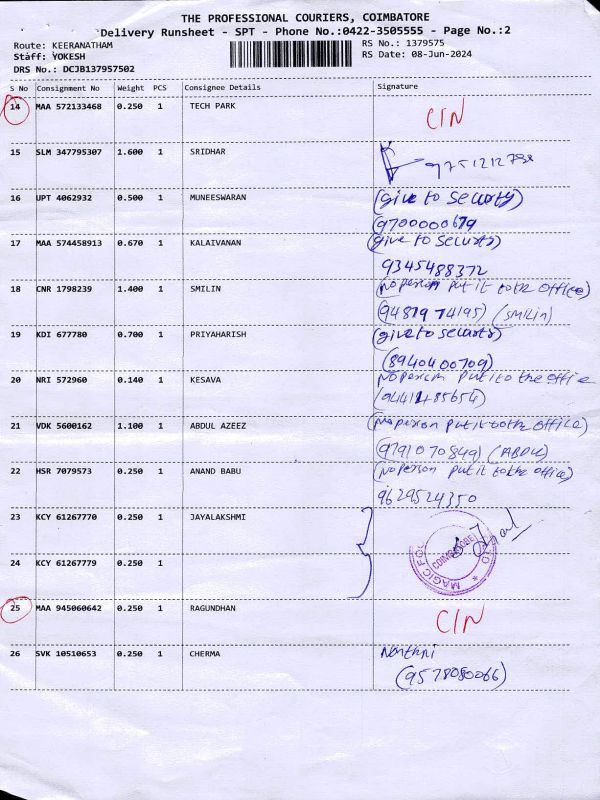 THE PROFESSIONAL COURIERS, COIMBATORE
Delivery Runsheet - SPT - Phone No.:0422-3505555 - Page No.:2
Route: KEERANATHAM
RS No.: 1379575
Staff: YOKESH
RS Date: 08-Jun-2024
DRS No.: DCJB137957502
S No Consignment No Weight PCS Consignee Details Signature
14 MAA 572133468 0.250 1 TECH PARK C/N
15 SLM 347795307 1.600 1 SRIDHAR
16 UPT 4062932 0.500 1 MUNEESWARAN (give to security)
(9700000679
17 MAA 574458913 0.670 1 KALAIVANAN (give to security)
9345488372
18 CNR 1798239 1.400 1 SMILIN (no person put it to the office)
(9487974195) (SMILIN)
19 KDI 677780 0.700 1 PRIYAHARISH (give to security)
(8940400709)
20 NRI 572960 0.140 1 KESAVA No person put it to the office
21 VDK 5600162 1.100 1 ABDUL AZEEZ (no person put it to the office)
(9791070849) (ABDU
22 HSR 7079573 0.250 1 ANAND BABU (No person put it to the office)
9629524350
23 KCY 61267770 0.250 1 JAYALAKSHMI
24 KCY 61267779 0.250 1
COIMBATORE
25 MAA 945060642 0.250 1 RAGUNDHAN C/N
26 SVK 10510653 0.250 1 CHERMA
(9578080066)